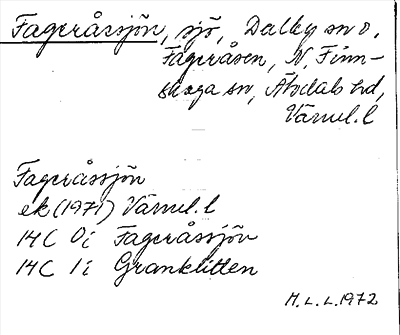 Fageråssjön, sjö, Dalby sn o.
Fageråsen, N. Finn-
skoga sn, Älvdals hd,
Värml. l
Fageråssjön
ek (1971) Värml. l
14C 0i Fageråssjön
14C 1i Granklitten
M. L. L. 1972